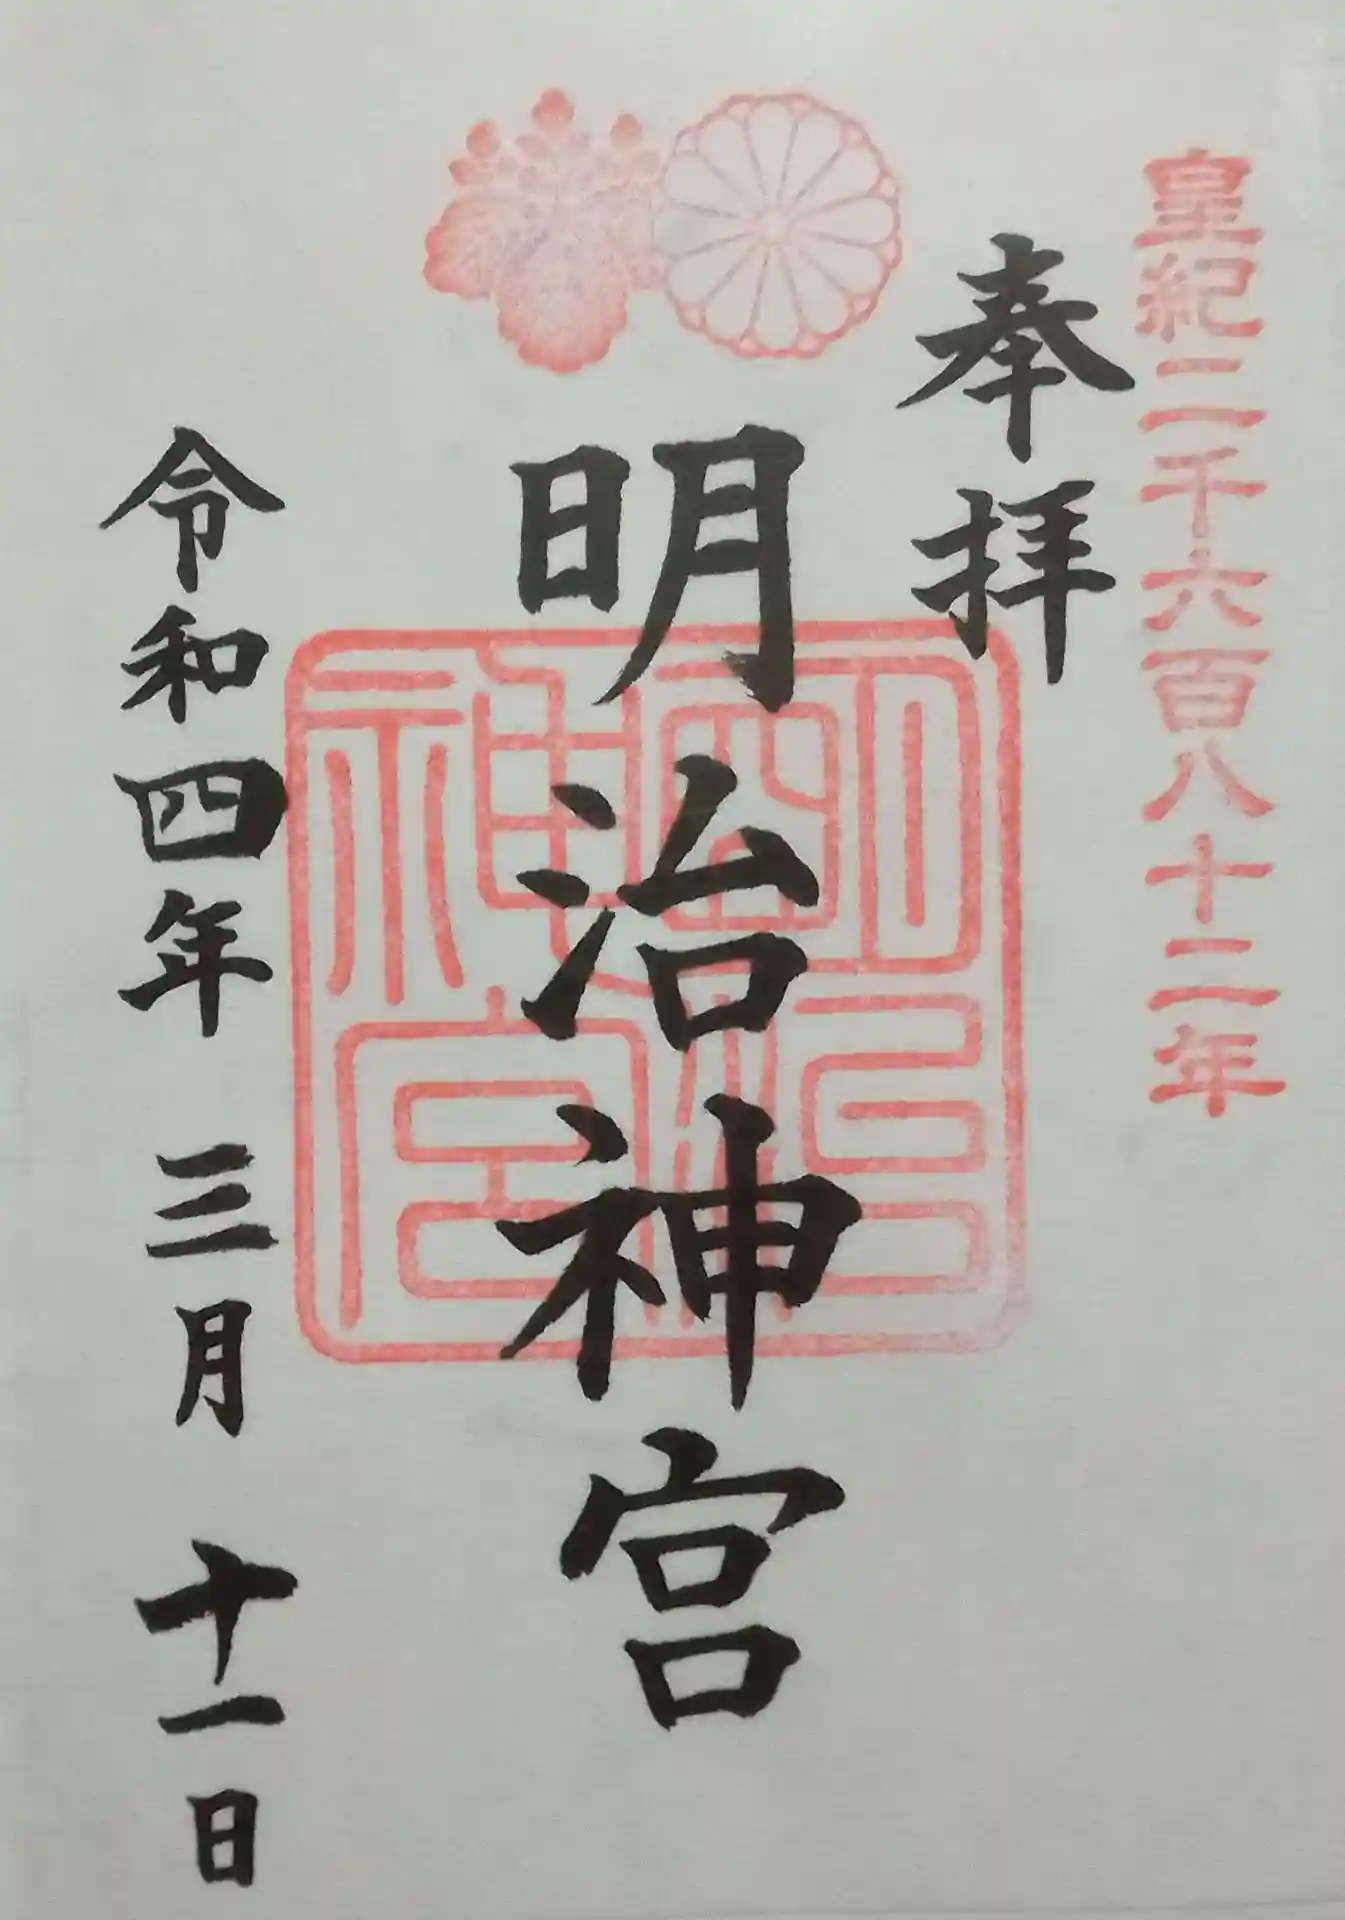 皇紀二千六百八十二年
奉拝
明治神宮
明治神宮
令和四年 三月 十一日